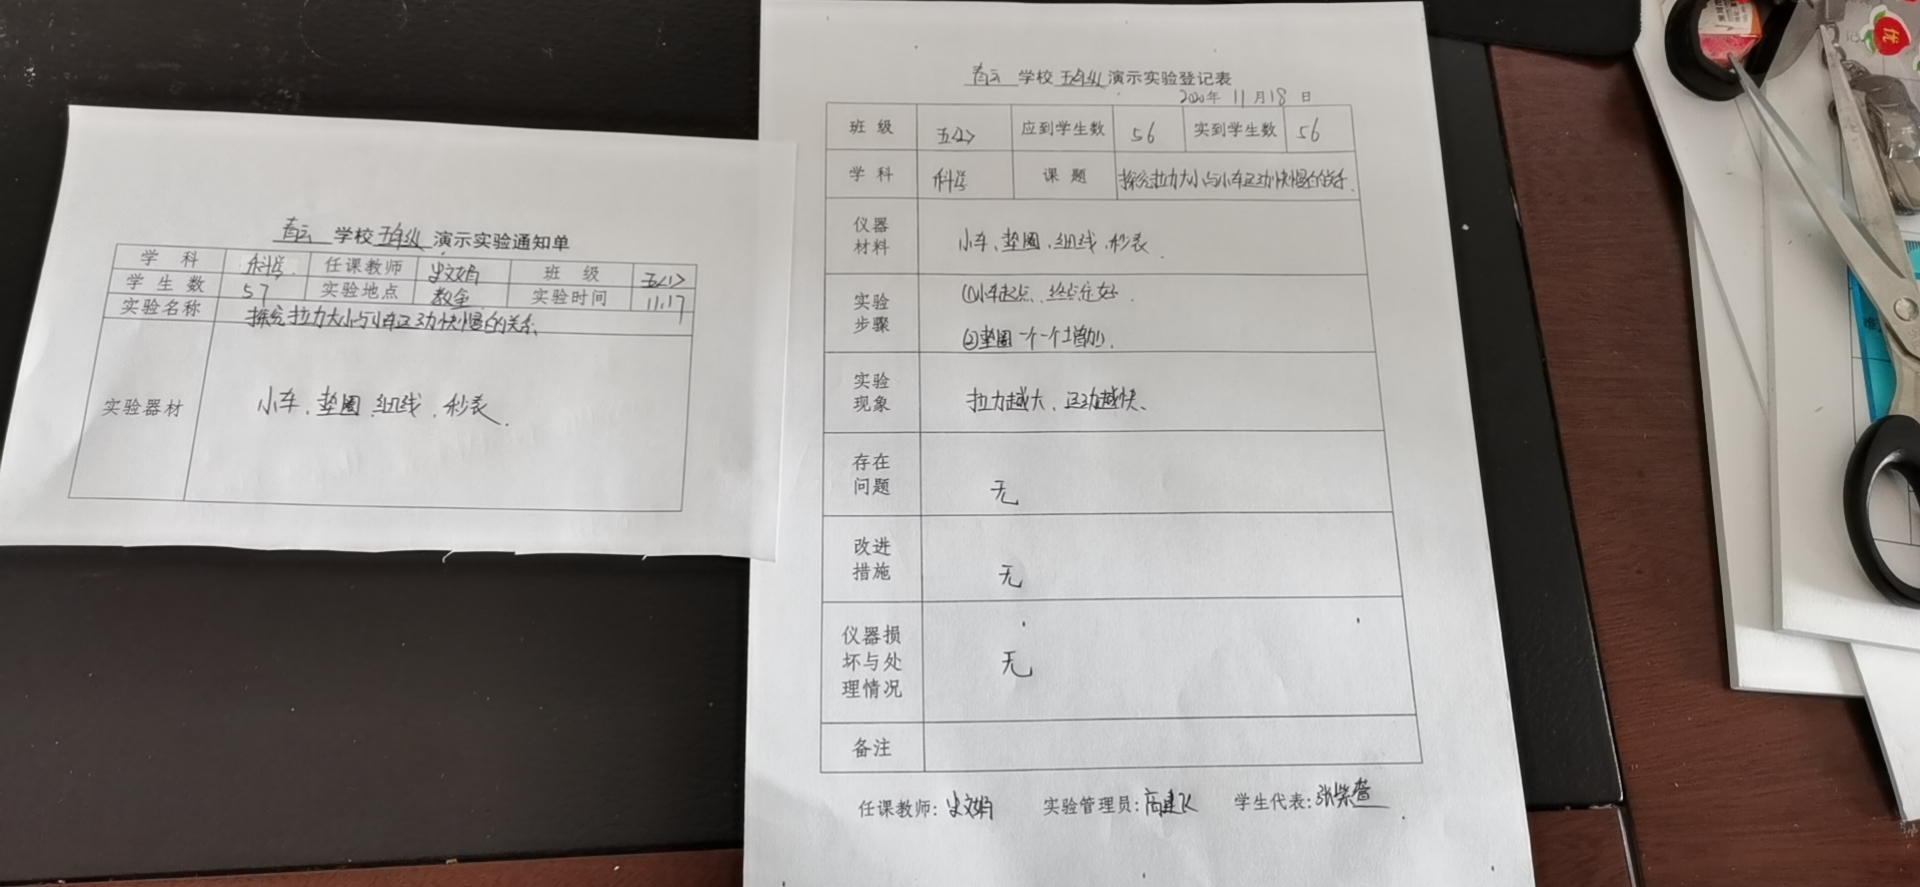 青云 学校 五年级 演示实验通知单
学 科 科学 任课教师 史文娟 班 级 五<1>
学 生 数 57 实验地点 教室 实验时间 11.17
实验名称 探究拉力大小与小车运动快慢的关系
实验器材 小车、垫圈、细线、秒表.
青云 学校 五年级 演示实验登记表
2020年 11月18日
班 级 应到学生数 56 实到学生数 56
学 科 科学 课 题 探究拉力大小与小车运动快慢的关系.
仪器材料 小车、垫圈、细线、秒表.
实验步骤 ①小车起点、终点定好.
②垫圈一个一个增加.
实验现象 拉力越大、运动越快、
存在问题 无
改进措施 无
仪器损坏与处理情况 无
备注
任课教师:史文娟 实验管理员:高建飞 学生代表:张紫萱
优